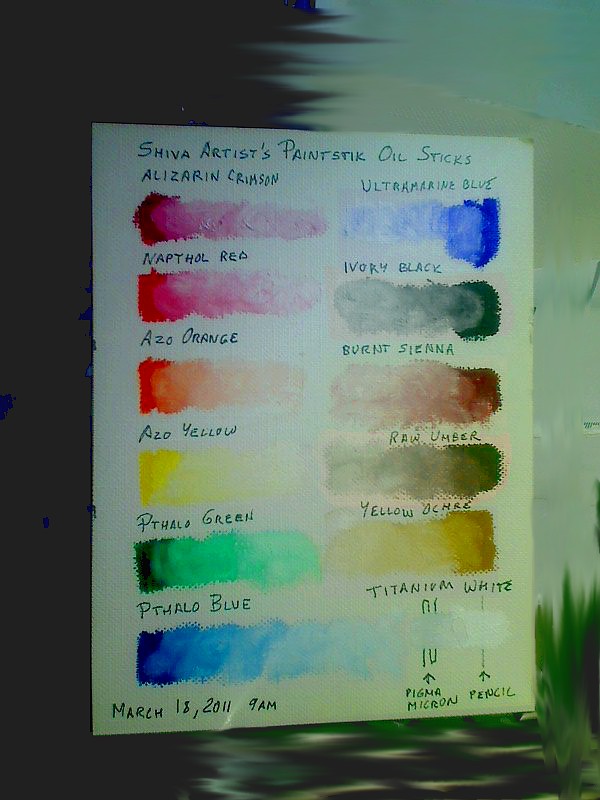 SHIVA ARTIST'S PAINTSTIK OIL STICKS
ALIZARIN CRIMSON
ULTRAMARINE BLUE
NAPTHOL RED
IVORY BLACK
AZO ORANGE
BURNT SIENNA
AZO YELLOW
RAW UMBER
PTHALO GREEN
YELLOW OCHRE
PTHALO BLUE
TITANIUM WHITE
PIGMA MICRON
PENCIL
MARCH 18, 2011 9AM